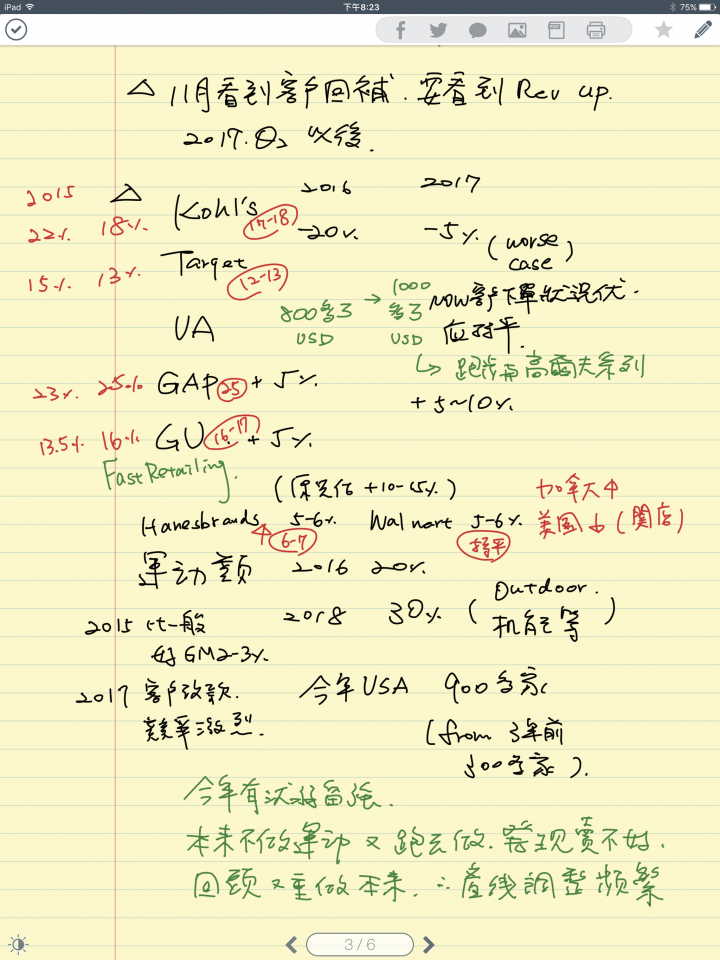 iPad 下午8:23 75%
PDF
△ 11月看到客戶回補. 要看到 Rev up.
2017.Q2 以後.
2015 △ 2016 2017
22% 18% Kohl's 17-18 -20% -5% (worse case)
15% 13% Target 12-13
UA 800多万 USD → 1000多万 USD NOW客戶下單狀況优.
应持平.
↳ 跑步再高爾夫系列
+5~10%
23% 25% GAP 25 +5%
13.5% 16% GU 16-17 +5%
Fast Retailing.
(原先估 +10-15%)
Hanesbrands 5-6% Walmart 5-6% 加拿大↑
6-7 持平 美國↓(関店)
運动類 2016 20%
2018 30% (Outdoor. 机能等)
2015 比一般
好GM2-3%
2017 客戶改款. 今年USA 900多家
競爭激烈. (from 3年前
300多家).
今年有沃好留強.
本來不做運动又跑去做.發現賣不好.
回頭又重做本來. ∴產線調整頻繁
3 / 6